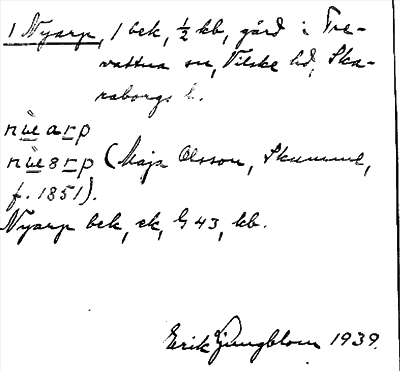 1 Nyarp, 1 bek, ½ kb, gård i Tre-
vattna sn, Vilske hd, Ska-
raborgs l.
nu̇e arp
nu̇e srp (Maja Olsson, Skummel,
f. 1851).
Nyarp bek, ek, G 43, kb.
Erik Ljungblom 1939.